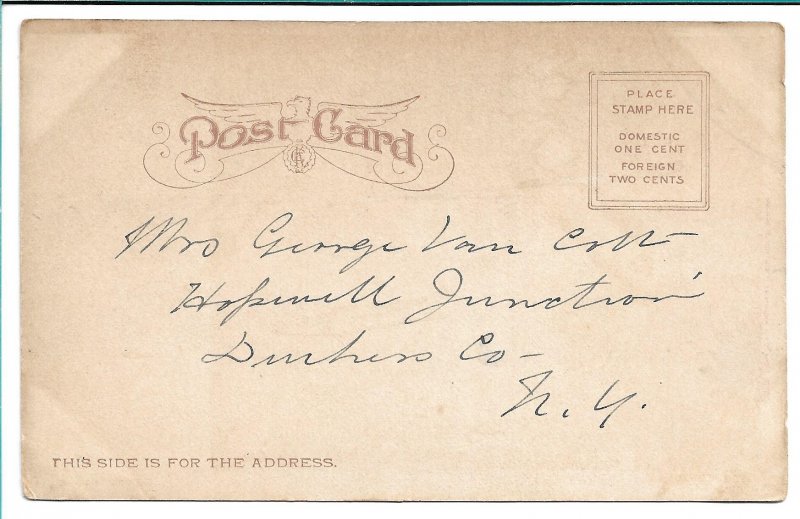 Post Card
PLACE
STAMP HERE
DOMESTIC
ONE CENT
FOREIGN
TWO CENTS
Mrs George Van Cott
Hopewell Junction
Dutchess Co-
N. Y.
THIS SIDE IS FOR THE ADDRESS.